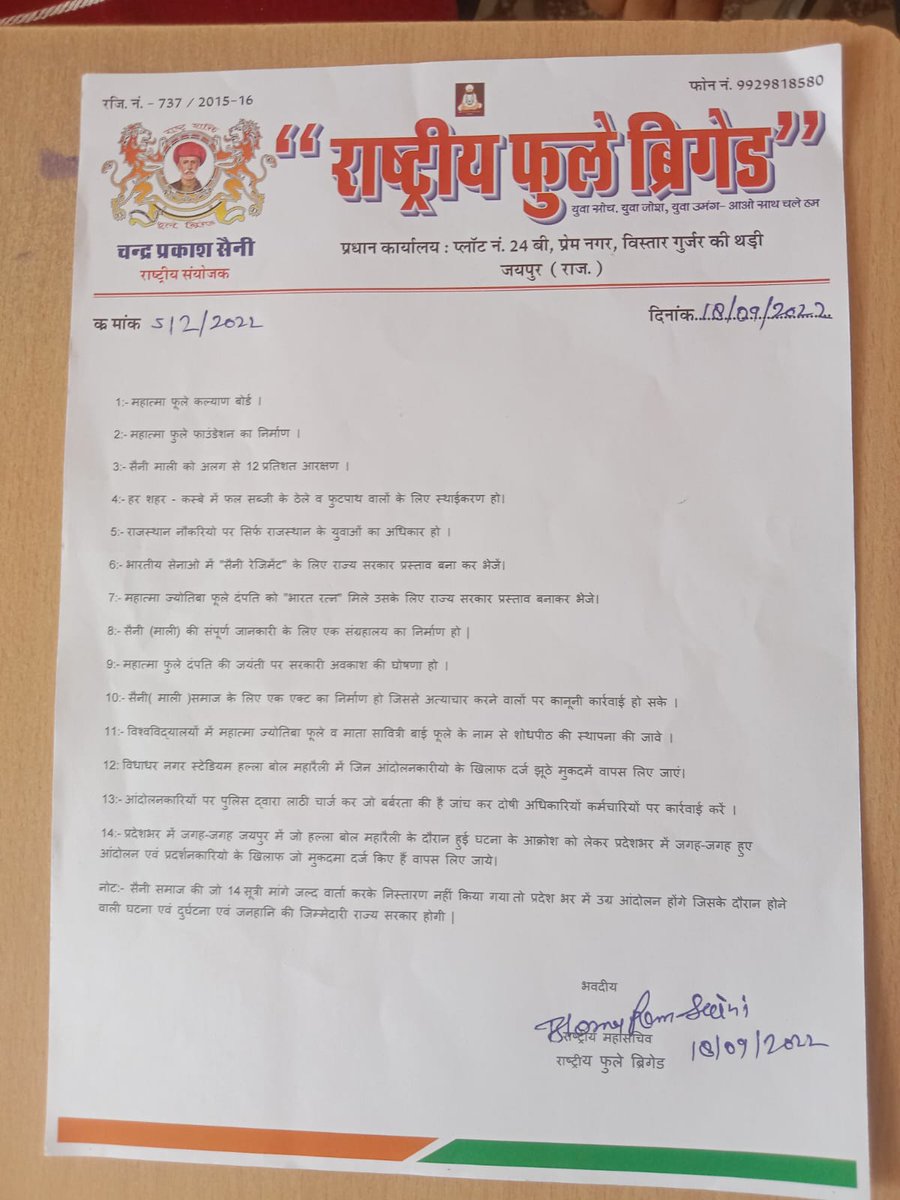 रजि. नं. - 737 / 2015-16
फोन नं. 9929818580
"राष्ट्रीय फुले ब्रिगेड"
युवा सोच, युवा जोश, युवा उमंग- आओ साथ चले हम
चन्द्र प्रकाश सैनी
राष्ट्रीय संयोजक
प्रधान कार्यालय : प्लॉट नं. 24 बी, प्रेम नगर, विस्तार गुर्जर की थड़ी
जयपुर ( राज. )
क्र मांक 512/2022
दिनांक 18/09/2022
1:- महात्मा फूले कल्याण बोर्ड ।
2:- महात्मा फुले फाउंडेशन का निर्माण ।
3:- सैनी माली को अलग से 12 प्रतिशत आरक्षण ।
4:- हर शहर - कस्बे में फल सब्जी के ठेले व फुटपाथ वालों के लिए स्थाईकरण हो।
5:- राजस्थान नौकरियो पर सिर्फ राजस्थान के युवाओं का अधिकार हो ।
6:- भारतीय सेनाओ में "सैनी रेजिमेंट" के लिए राज्य सरकार प्रस्ताव बना कर भेजें।
7:- महात्मा ज्योतिबा फूले दंपति को "भारत रत्न" मिले उसके लिए राज्य सरकार प्रस्ताव बनाकर भेजे।
8:- सैनी (माली) की संपूर्ण जानकारी के लिए एक संग्रहालय का निर्माण हो |
9:- महात्मा फुले दंपति की जयंती पर सरकारी अवकाश की घोषणा हो ।
10:- सैनी( माली )समाज के लिए एक एक्ट का निर्माण हो जिससे अत्याचार करने वालों पर कानूनी कार्रवाई हो सके ।
11:- विश्वविद्यालयों में महात्मा ज्योतिबा फूले व माता सावित्री बाई फूले के नाम से शोधपीठ की स्थापना की जावे ।
12: विधाधर नगर स्टेडियम हल्ला बोल महारैली में जिन आंदोलनकारीयो के खिलाफ दर्ज झूठे मुकदमें वापस लिए जाएं।
13:- आंदोलनकारियों पर पुलिस द्वारा लाठी चार्ज कर जो बर्बरता की है जांच कर दोषी अधिकारियों कर्मचारियों पर कार्रवाई करें ।
14:- प्रदेशभर में जगह-जगह जयपुर में जो हल्ला बोल महारैली के दौरान हुई घटना के आक्रोश को लेकर प्रदेशभर में जगह-जगह हुए
आंदोलन एवं प्रदर्शनकारियो के खिलाफ जो मुकदमा दर्ज किए हैं वापस लिए जाये।
नोट:- सैनी समाज की जो 14 सूत्री मांगे जल्द वार्ता करके निस्तारण नहीं किया गया तो प्रदेश भर में उग्र आंदोलन होंगे जिसके दौरान होने
वाली घटना एवं दुर्घटना एवं जनहानि की जिम्मेदारी राज्य सरकार होगी |
भवदीय
राष्ट्रीय महासचिव
राष्ट्रीय फुले ब्रिगेड
18/09/2022